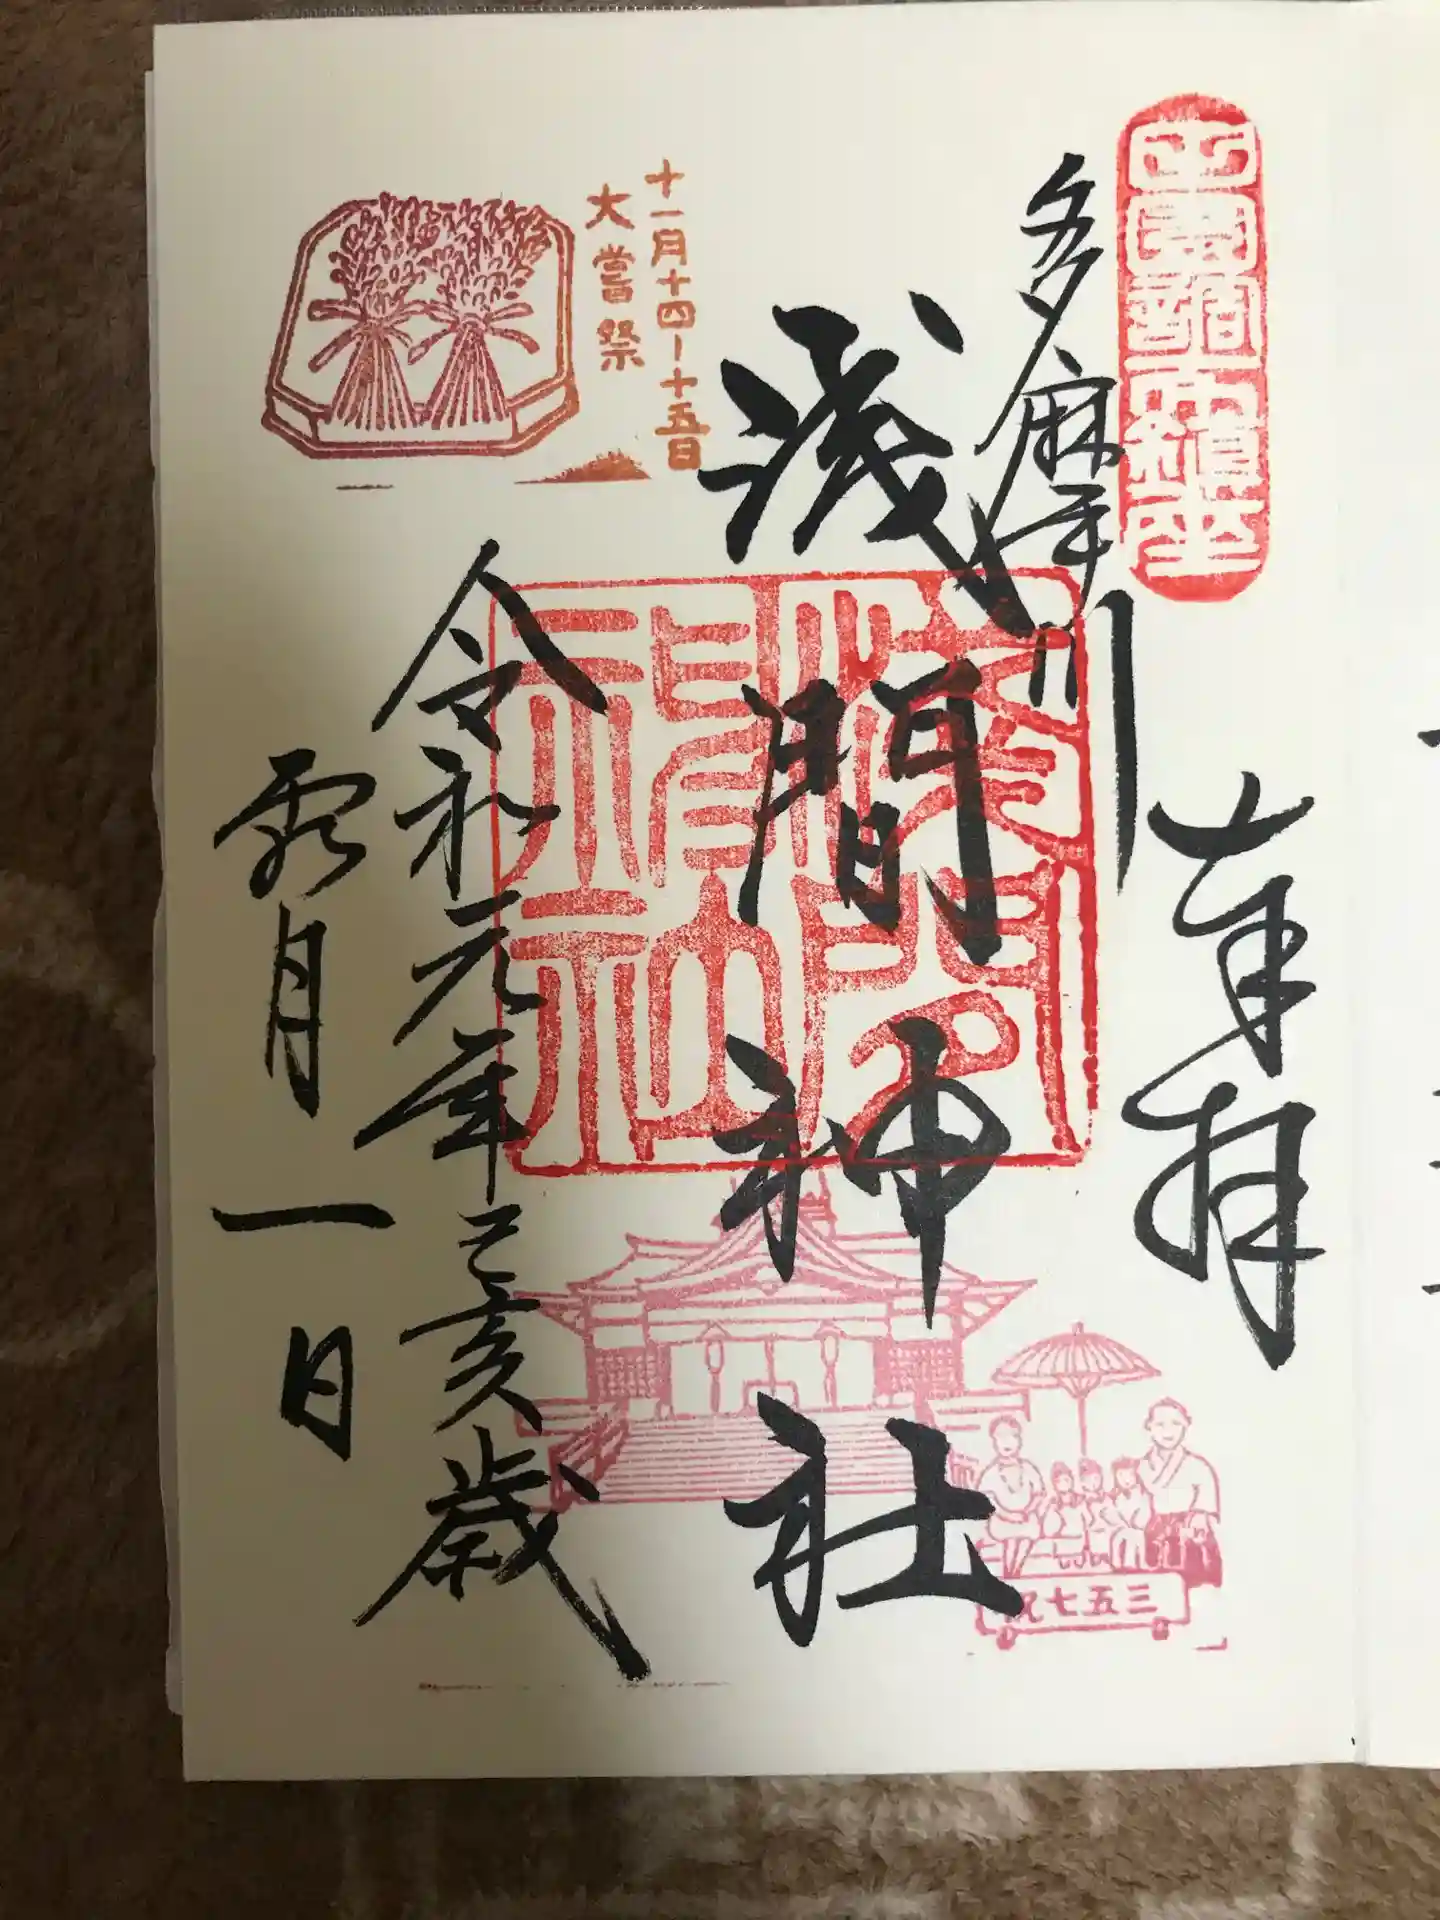 田園調布鎮座
奉拝
多摩川
浅間神社
十一月十四-十五日
大嘗祭
令和元年己亥歳
霜月一日
祝七五三